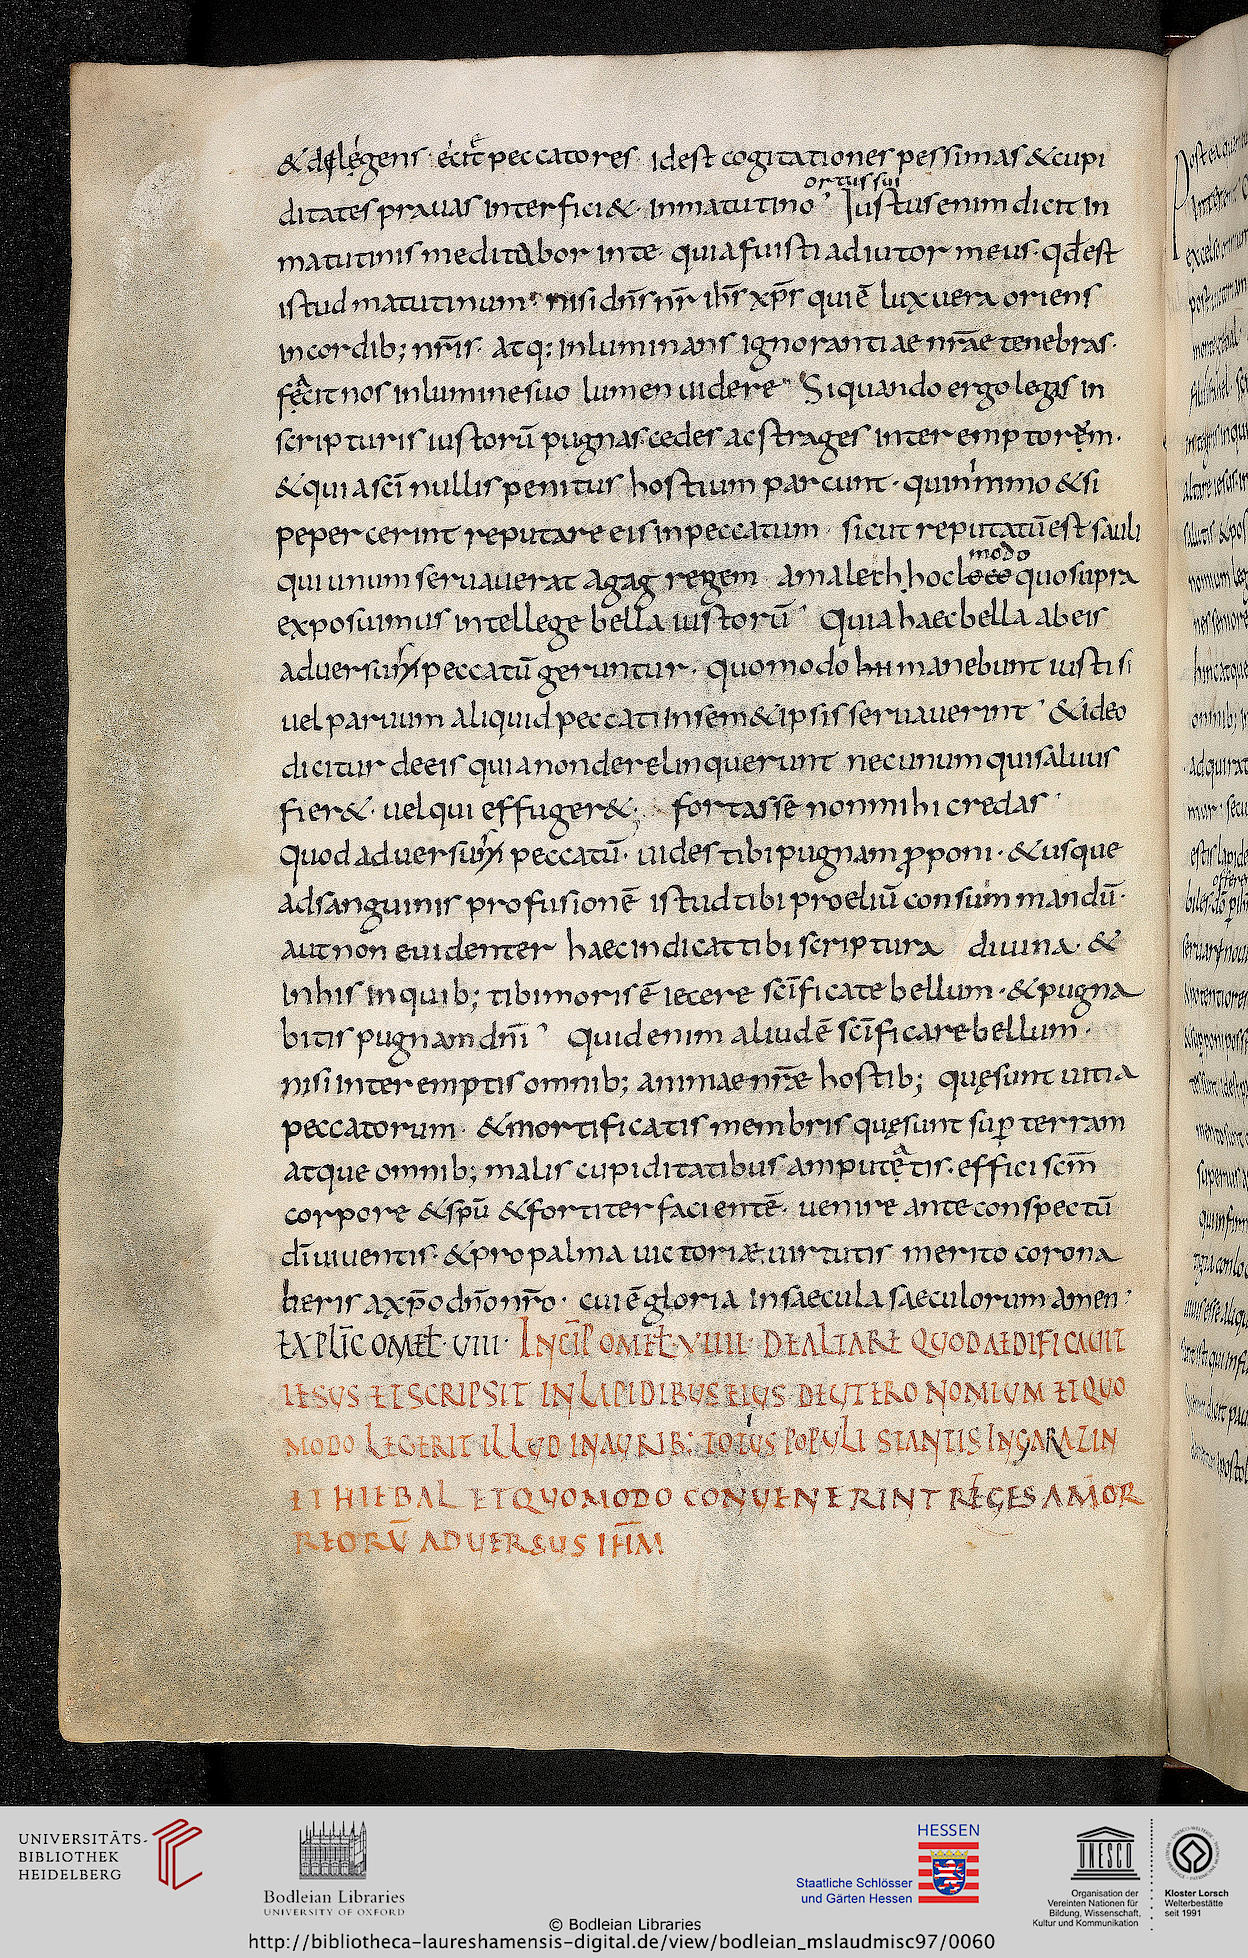 & delegens ecit peccatores · id est cogitationes pessimas & cupi
ortus sui
ditates prauas interfici& · in matutino Iustus enim dicit in
matutinis meditabor in te · quia fuisti adiutor meus · qd est
istud matutinum · nisi dn̄s nr̄ ih̄s xp̄s qui ē lux uera oriens
in cordib; nr̄is · atq: inluminans ignorantiae nr̄ae tenebras ·
fecit nos in lumine suo lumen uidere Si quando ergo legis in
scripturis iustorū pugnas cedes ac strages interemptorem ·
& quia sc̄i nullis penitus hostium parcunt · quinimmo & si
pepercerint reputare eis in peccatum · sicut reputatū est sauli
modo
qui unum seruauerat agag regem amalech hoc loco quo supra
exposuimus intellege bella iustorū Quia haec bella ab eis
aduersum peccatū geruntur · quomodo hii manebunt iusti si
uel paruum aliquid peccati in sem&ipsis seruauerint & ideo
dicitur de eis quia non derelinquerunt nec unum qui saluus
fier& · uel qui effuger& · fortasse non mihi credas
Quod aduersum peccatū · uides tibi pugnam proponi · & usque
ad sanguinis profusionē istud tibi proeliū consummandū ·
aut non euidenter haec indicat tibi scriptura diuina · &
in his in quib; tibi moris ē iecere sc̄ificate bellum · & pugna
bitis pugnam dn̄i Quid enim aliud ē sc̄ificare bellum ·
nisi interemptis omnib; animae nr̄ae hostib; quę sunt uitia
peccatorum · & mortificatis membris quę sunt sup terram
atque omnib; malis cupiditatibus amputatis · effici sc̄m
corpore & sp̄ū & fortiter facientē · uenire ante conspectū
dī uiuentis · & pro palma uictoriae uirtutis merito corona
beris a xp̄o dn̄o nr̄o · cui ē gloria in saecula saeculorum amen
EXPLIC OMEL · VIII · INCIP OMEL · VIIII · DE ALTARE QUOD AEDIFICAUIT
IESUS ET SCRIPSIT IN LAPIDIBUS EIUS DEUTERONOMIUM ET QUO
MODO LEGERIT ILLUD IN AURIB; TOTIUS POPULI STANTIS IN GARAZIN
ET HIEBAL ET QUOMODO CONUENERINT REGES AMOR
REORŪ ADUERSUS IHM
UNIVERSITÄTS-
BIBLIOTHEK
HEIDELBERG
Bodleian Libraries
UNIVERSITY OF OXFORD
HESSEN
Staatliche Schlösser
und Gärten Hessen
UNESCO
Organisation der
Vereinten Nationen für
Bildung, Wissenschaft,
Kultur und Kommunikation
Kloster Lorsch
Welterbestätte
seit 1991
© Bodleian Libraries
http://bibliotheca-laureshamensis-digital.de/view/bodleian_mslaudmisc97/0060